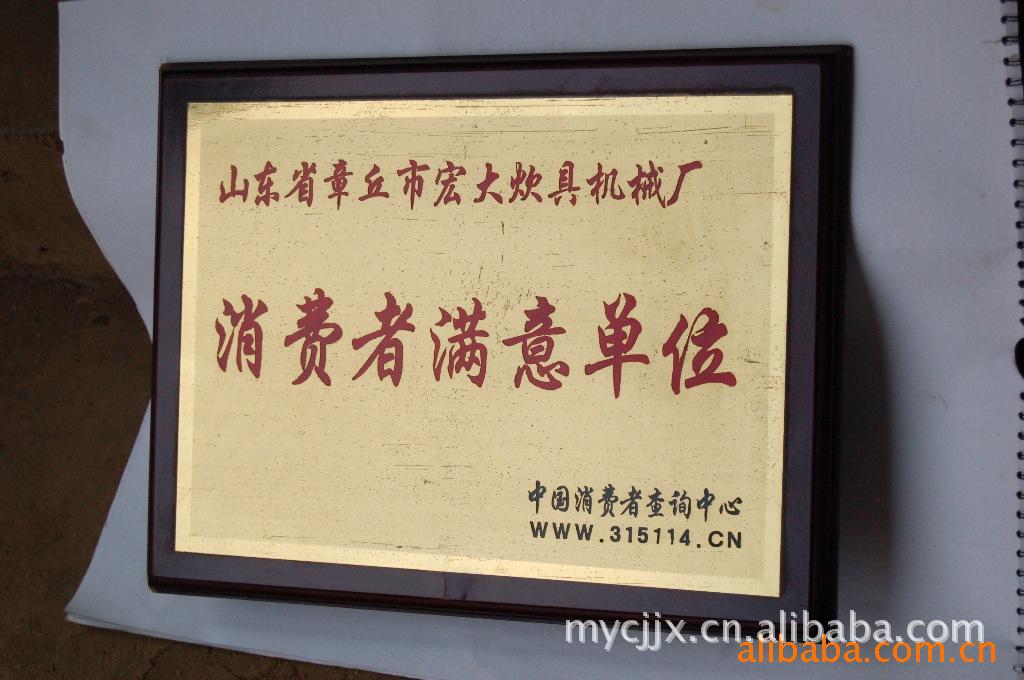 山东省章丘市宏大炊具机械厂
消费者满意单位
中国消费者查询中心
WWW.315114.CN
mycjjx.cn.alibaba.com
alibaba.com.cn